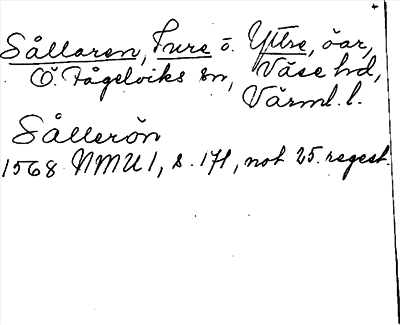 Sållaren, Ture o. Yttre, öar,
Ö. Fågelviks sn, Väse hd,
Värml. l.
Sållerön
1568 NMU 1, s. 171, not 25. regest.